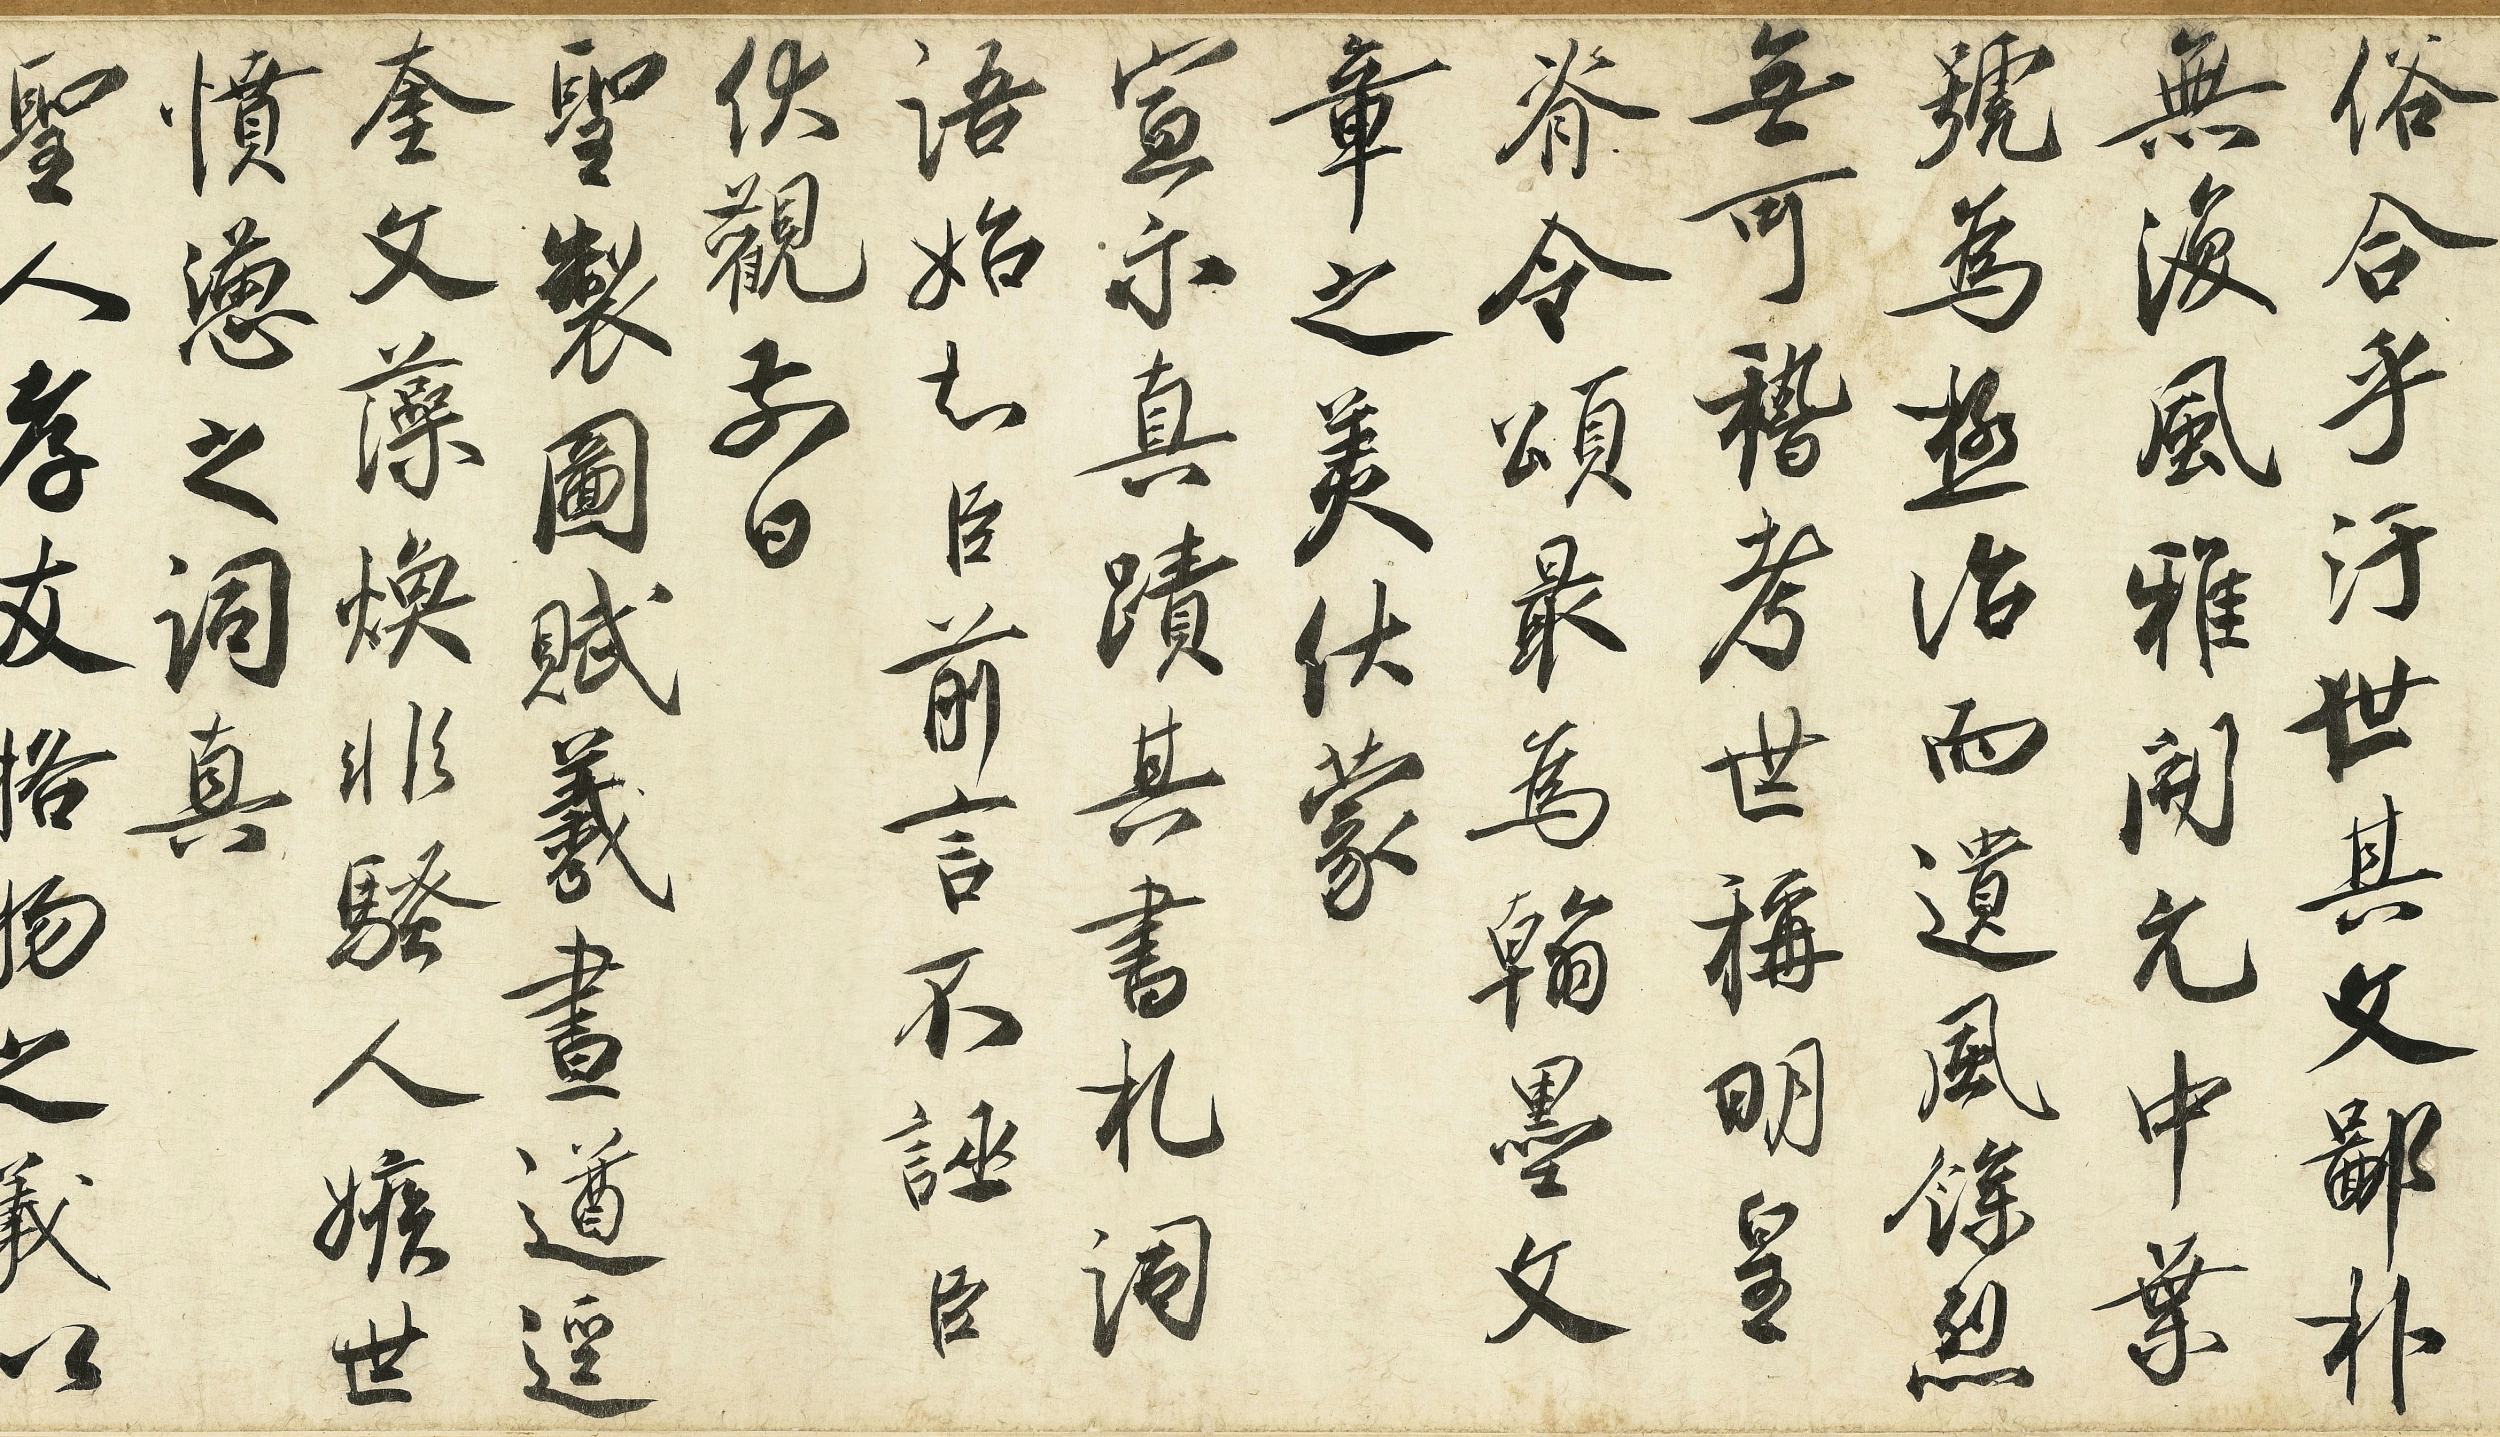 俗合乎汙世其文鄙朴
無復風雅開元中葉
號為極治而遺風餘烈
無可稽考世稱明皇
脊令頌最為翰墨文
章之美伏蒙
宣示真蹟其書札詞
語始知臣前言不誣臣
伏觀前日
聖製圖賦羲畫遒逕
奎文藻煥非騷人嫉世
憤懣之詞真
聖人孝友格物之義以